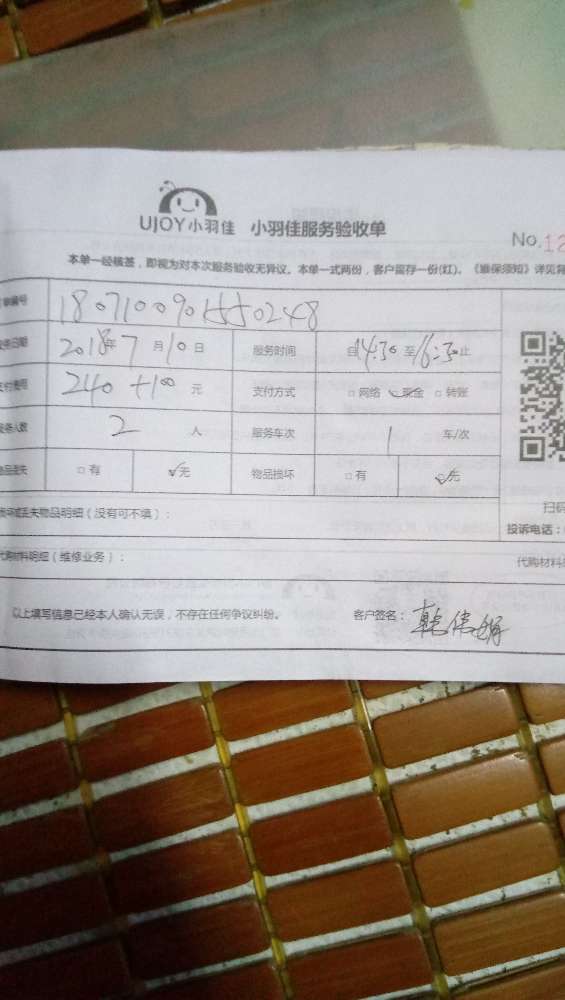 UJOY小羽佳 小羽佳服务验收单
No.12
本单一经核基，即视为对本次服务验收无异议。本单一式两份，客户留存一份(红)。《维保须知》详见背
单编号 18071009015550248
务日期 2018年7月10日 服务时间 自14:30至16:30止
支付费用 240+100 元 支付方式 □网络 ✓现金 □转账
服务人数 2 人 服务车次 1 车/次
物品丢失 □有 ✓无 物品损坏 □有 ✓无
损坏或丢失物品明细（没有可不填）： 扫码
投诉电话：
代购材料明细（维修业务）： 代购材料
以上填写信息已经本人确认无误，不存在任何争议纠纷。 客户签名：